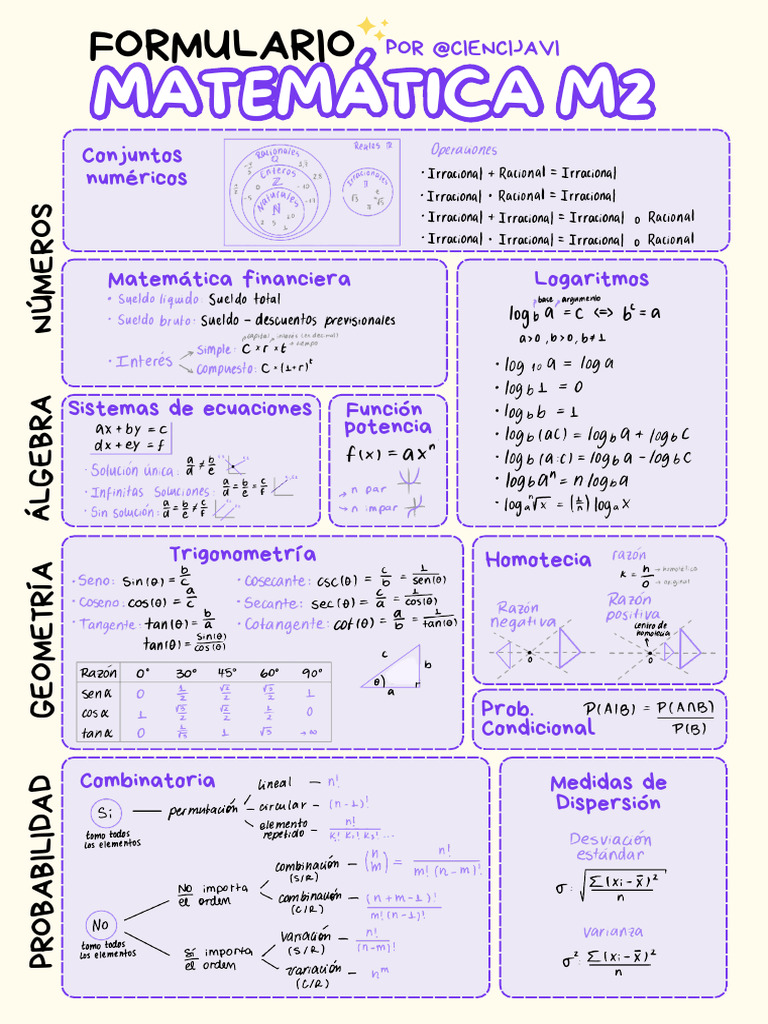 FORMULARIO
POR @CIENCIJAVI
MATEMÁTICA M2
NÚMEROS
Conjuntos
numéricos
Racionales
Q
Enteros
Z
Naturales
N
Reales R
Irracionales
Operaciones
· Irracional + Racional = Irracional
· Irracional · Racional = Irracional
· Irracional + Irracional = Irracional o Racional
· Irracional · Irracional = Irracional o Racional
Matemática financiera
· Sueldo líquido: Sueldo total
· Sueldo bruto: Sueldo – descuentos previsionales
· Interés
capital interés (en decimal)
simple: C × r × t → tiempo
compuesto: C × (1+r)^t
Logaritmos
base argumento
log_b a = c <=> b^c = a
a>0, b>0, b≠1
· log_10 a = log a
· log_b 1 = 0
· log_b b = 1
· log_b (ac) = log_b a + log_b c
· log_b (a:c) = log_b a - log_b c
· log_b a^n = n log_b a
· log_a ⁿ√x = (1/n) log_a x
ÁLGEBRA
Sistemas de ecuaciones
ax + by = c
dx + ey = f
· Solución única: a/d ≠ b/e
· Infinitas soluciones: a/d = b/e = c/f
· Sin solución: a/d = b/e ≠ c/f
Función
potencia
f(x) = ax^n
→ n par
→ n impar
GEOMETRÍA
Trigonometría
· Seno: sin(θ) = b/c
· Coseno: cos(θ) = a/c
· Tangente: tan(θ) = b/a
tan(θ) = sin(θ)/cos(θ)
· Cosecante: csc(θ) = c/b = 1/sen(θ)
· Secante: sec(θ) = c/a = 1/cos(θ)
· Cotangente: cot(θ) = a/b = 1/tan(θ)
Razón 0° 30° 45° 60° 90°
sen α 0 1/2 √2/2 √3/2 1
cos α 1 √3/2 √2/2 1/2 0
tan α 0 1/√3 1 √3 →∞
c
b
θ
a
r
Homotecia
razón
K = h/o
→ homotético
→ original
Razón
negativa
Razón
positiva
centro de
homotecia
o
o
Prob.
Condicional
P(A|B) = P(A∩B)/P(B)
PROBABILIDAD
Combinatoria
Si
tomo todos
los elementos
permutación
lineal — n!
circular — (n-1)!
elemento
repetido — n!/K₁! K₂! K₃! ...
No
tomo todos
los elementos
No importa
el orden
combinación
(S/R)
(n m) = n!/m!(n-m)!
combinación
(C/R)
(n+m-1)!/m!(n-1)!
Sí importa
el orden
variación
(S/R)
n!/(n-m)!
variación
(C/R)
n^m
Medidas de
Dispersión
Desviación
estándar
σ: √(Σ(xi - x̄)²/n)
varianza
σ²: Σ(xi - x̄)²/n